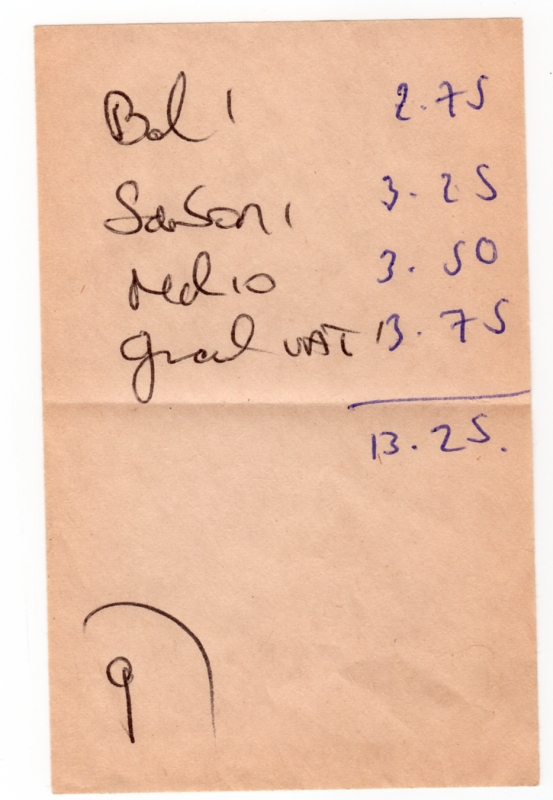 Bal 1 2.75
SaSon 1 3.25
red 10 3.50
graal VAT 13.75
13.25.
9